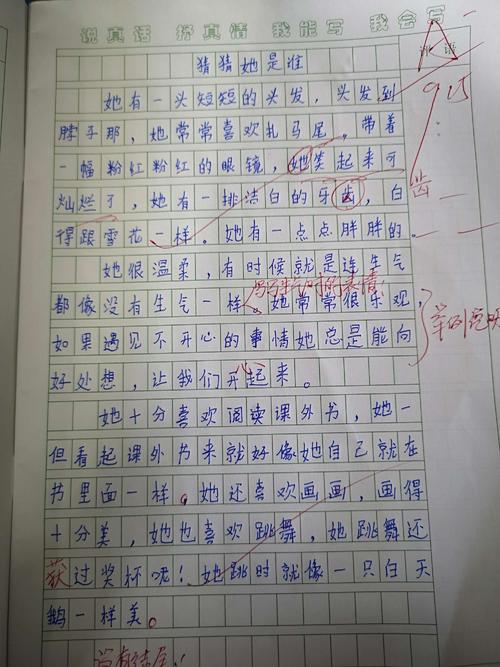 说真话 抒真情 我能写 我会写
猜猜她是谁
评语
她有一头短短的头发，头发到
脖子那，她常常喜欢扎马尾，带着
一幅粉红粉红的眼镜，她笑起来可
灿烂了，她有一排洁白的牙齿，白
齿
得跟雪花一样。她有一点点胖胖的。
她很温柔，有时候就是连生气
都像没有生气一样。她常常很乐观，
如果遇见不开心的事情她总是能向
举例说明
好处想，让我们开心起来。
她十分喜欢阅读课外书，她一
但看起课外书来就好像她自己就在
书里面一样。她还喜欢画画，画得
十分美，她也喜欢跳舞，她跳舞还
获过奖杯呢！她跳时就像一只白天
鹅一样美。
没有结尾！